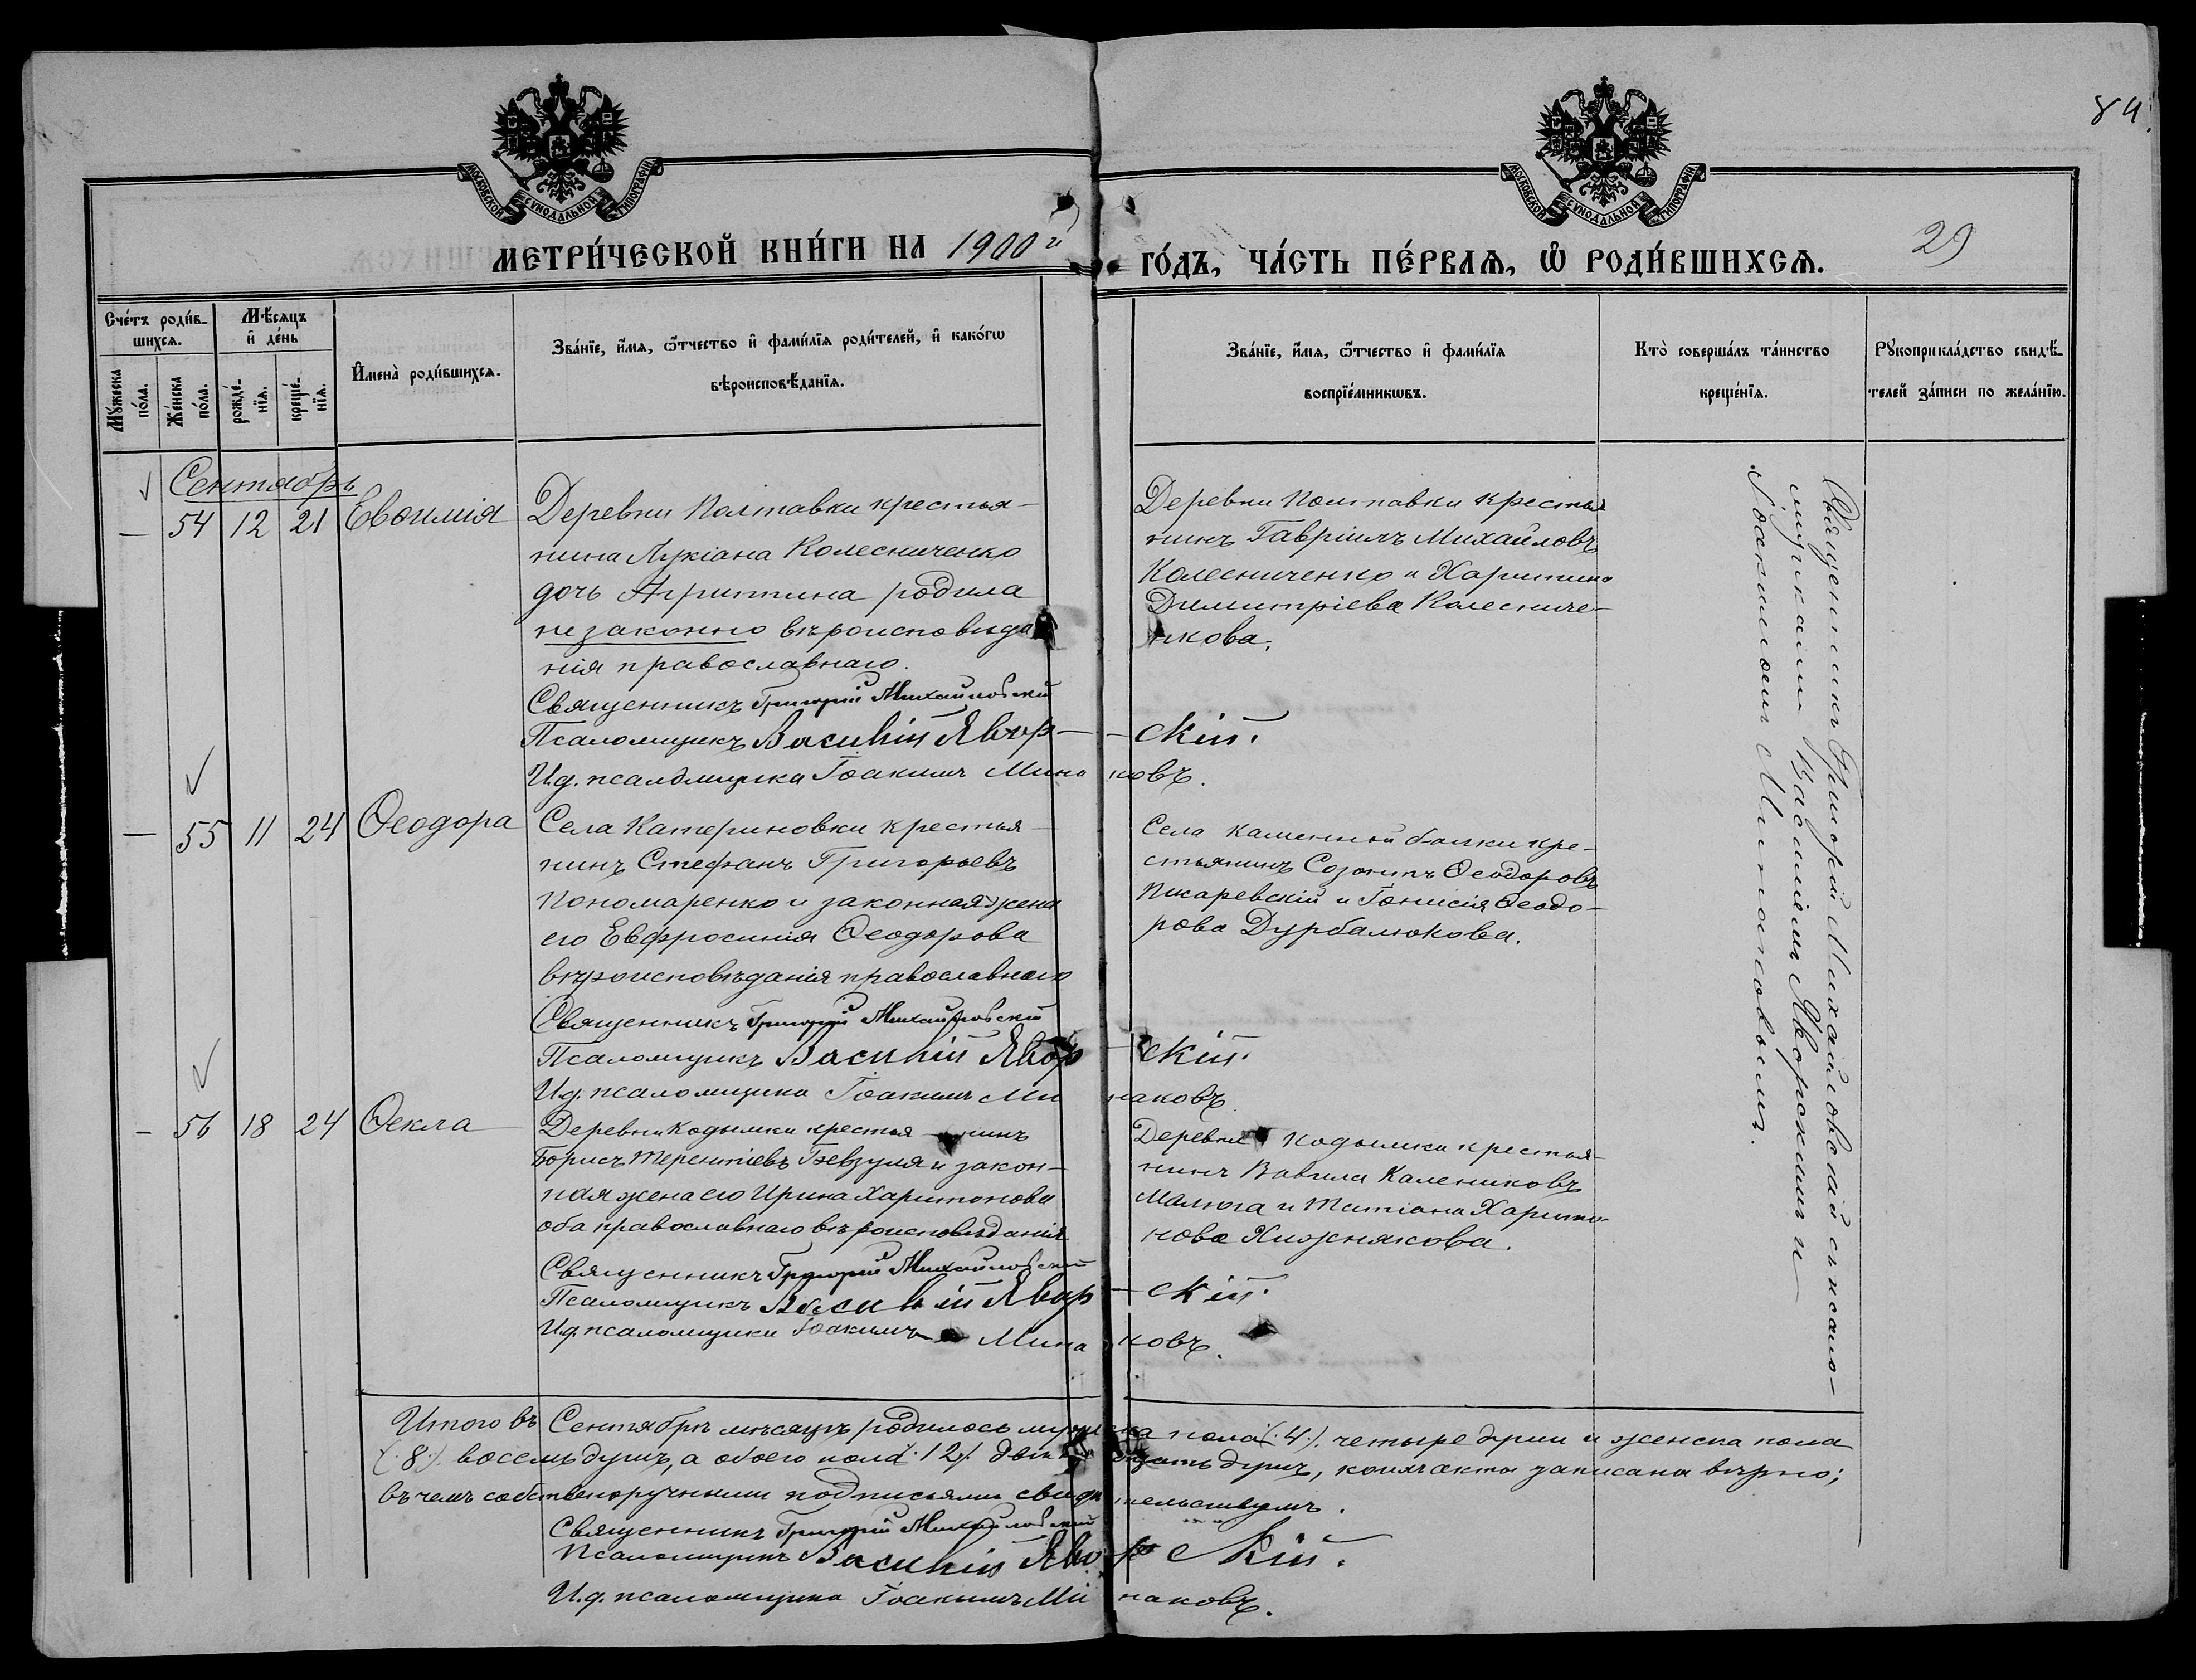 84.
МОСКОВСКОЙ СѴНОДАЛЬНОЙ ТИПОГРАФІИ
МОСКОВСКОЙ СѴНОДАЛЬНОЙ ТИПОГРАФІИ
МЕТРИ́ЧЕСКОЙ КНИ́ГИ НА 1900й ГО́ДЪ, ЧА́СТЬ ПЕ́РВАѦ, Ѽ РОДИ́ВШИХСѦ. 29
Сче́тъ роди́в-
шихсѧ.
Мꙋ́жеска по́ла.
Же́нска по́ла.
Мѣ́сѧцъ
и҆ де́нь
рожде́-
нїѧ.
креще́-
нїѧ.
И҆мена̀ роди́вшихсѧ.
Зва́нїе, и҆́мѧ, ѻ҆́тчество и҆ фами́лїѧ роди́телей, и҆ како́гѡ
вѣроисповѣ́данїѧ.
Зва́нїе, и҆́мѧ, ѻ҆́тчество и҆ фами́лїѧ
воспрїе́мникѡвъ.
Кто̀ соверша́лъ та́инство
креще́нїѧ.
Рꙋкоприкла́дство свидѣ́-
телей за́писи по жела́нїю.
Сентябрь
— 54 12 21 Евѳимія
Деревни Полтавки крестья-
нина Лукіана Колесниченко
дочь Агриппина родила
незаконно вѣроисповѣда
нія православнаго.
Священникъ Григорій Михайловскій
Псаломщикъ Василій Явор- -скій.
И.д. псаломщика Іоакимъ Мина ковъ.
Деревни Полтавки крестья
нинъ Гавріилъ Михайловъ
Колесниченко и Харитина
Димитріева Колесниче-
нкова.
— 55 11 24 Ѳеодора
Села Катериновки крестья-
нинъ Стефанъ Григорьевъ
Пономаренко и законная жена
его Евфросинія Ѳеодорова
вѣроисповѣданія православнаго
Священникъ Григорій Михайловскій
Псаломщикъ Василій Явор -скій.
И.д. псаломщика Іоакимъ Ми наковъ
Села Каменной балки кре-
стьянинъ Созонтъ Ѳеодоровъ
Писаревскій и Ѳеодо-
рова Дурбалюкова.
— 56 18 24 Ѳекла
Деревни Кодымки крестья-нинъ
Борисъ Терентіевъ Бевзуля и закон-
ная жена его Ирина Харитонова
оба православнаго вѣроисповѣданія
Священникъ Григорій Михайловскій
Псаломщикъ Василій Явор -скій.
И.д. псаломщика Іоакимъ Мина ковъ.
Деревни Кодымки крестья-
нинъ Вавила Калениковъ
Малюга и Татіана Харито-
нова Хижнякова.
Священникъ Григорій Михайловскій съ псало-
мщиками Василіемъ Яворскимъ и
Іоакимомъ Минаковымъ.
Итого въ Сентябрѣ мѣсяцѣ родилось мужеска пола (4). четыре души и женска пола
(8). восемь душъ, а обоего пола (12). двѣнадцать душъ, коихъ акты записаны вѣрно;
въ чемъ собственоручными подписями свидѣтельствуемъ.
Священникъ Григорій Михайловскій
Псаломщикъ Василій Яворскій.
И.д. псаломщика Іоакимъ Ми наковъ.